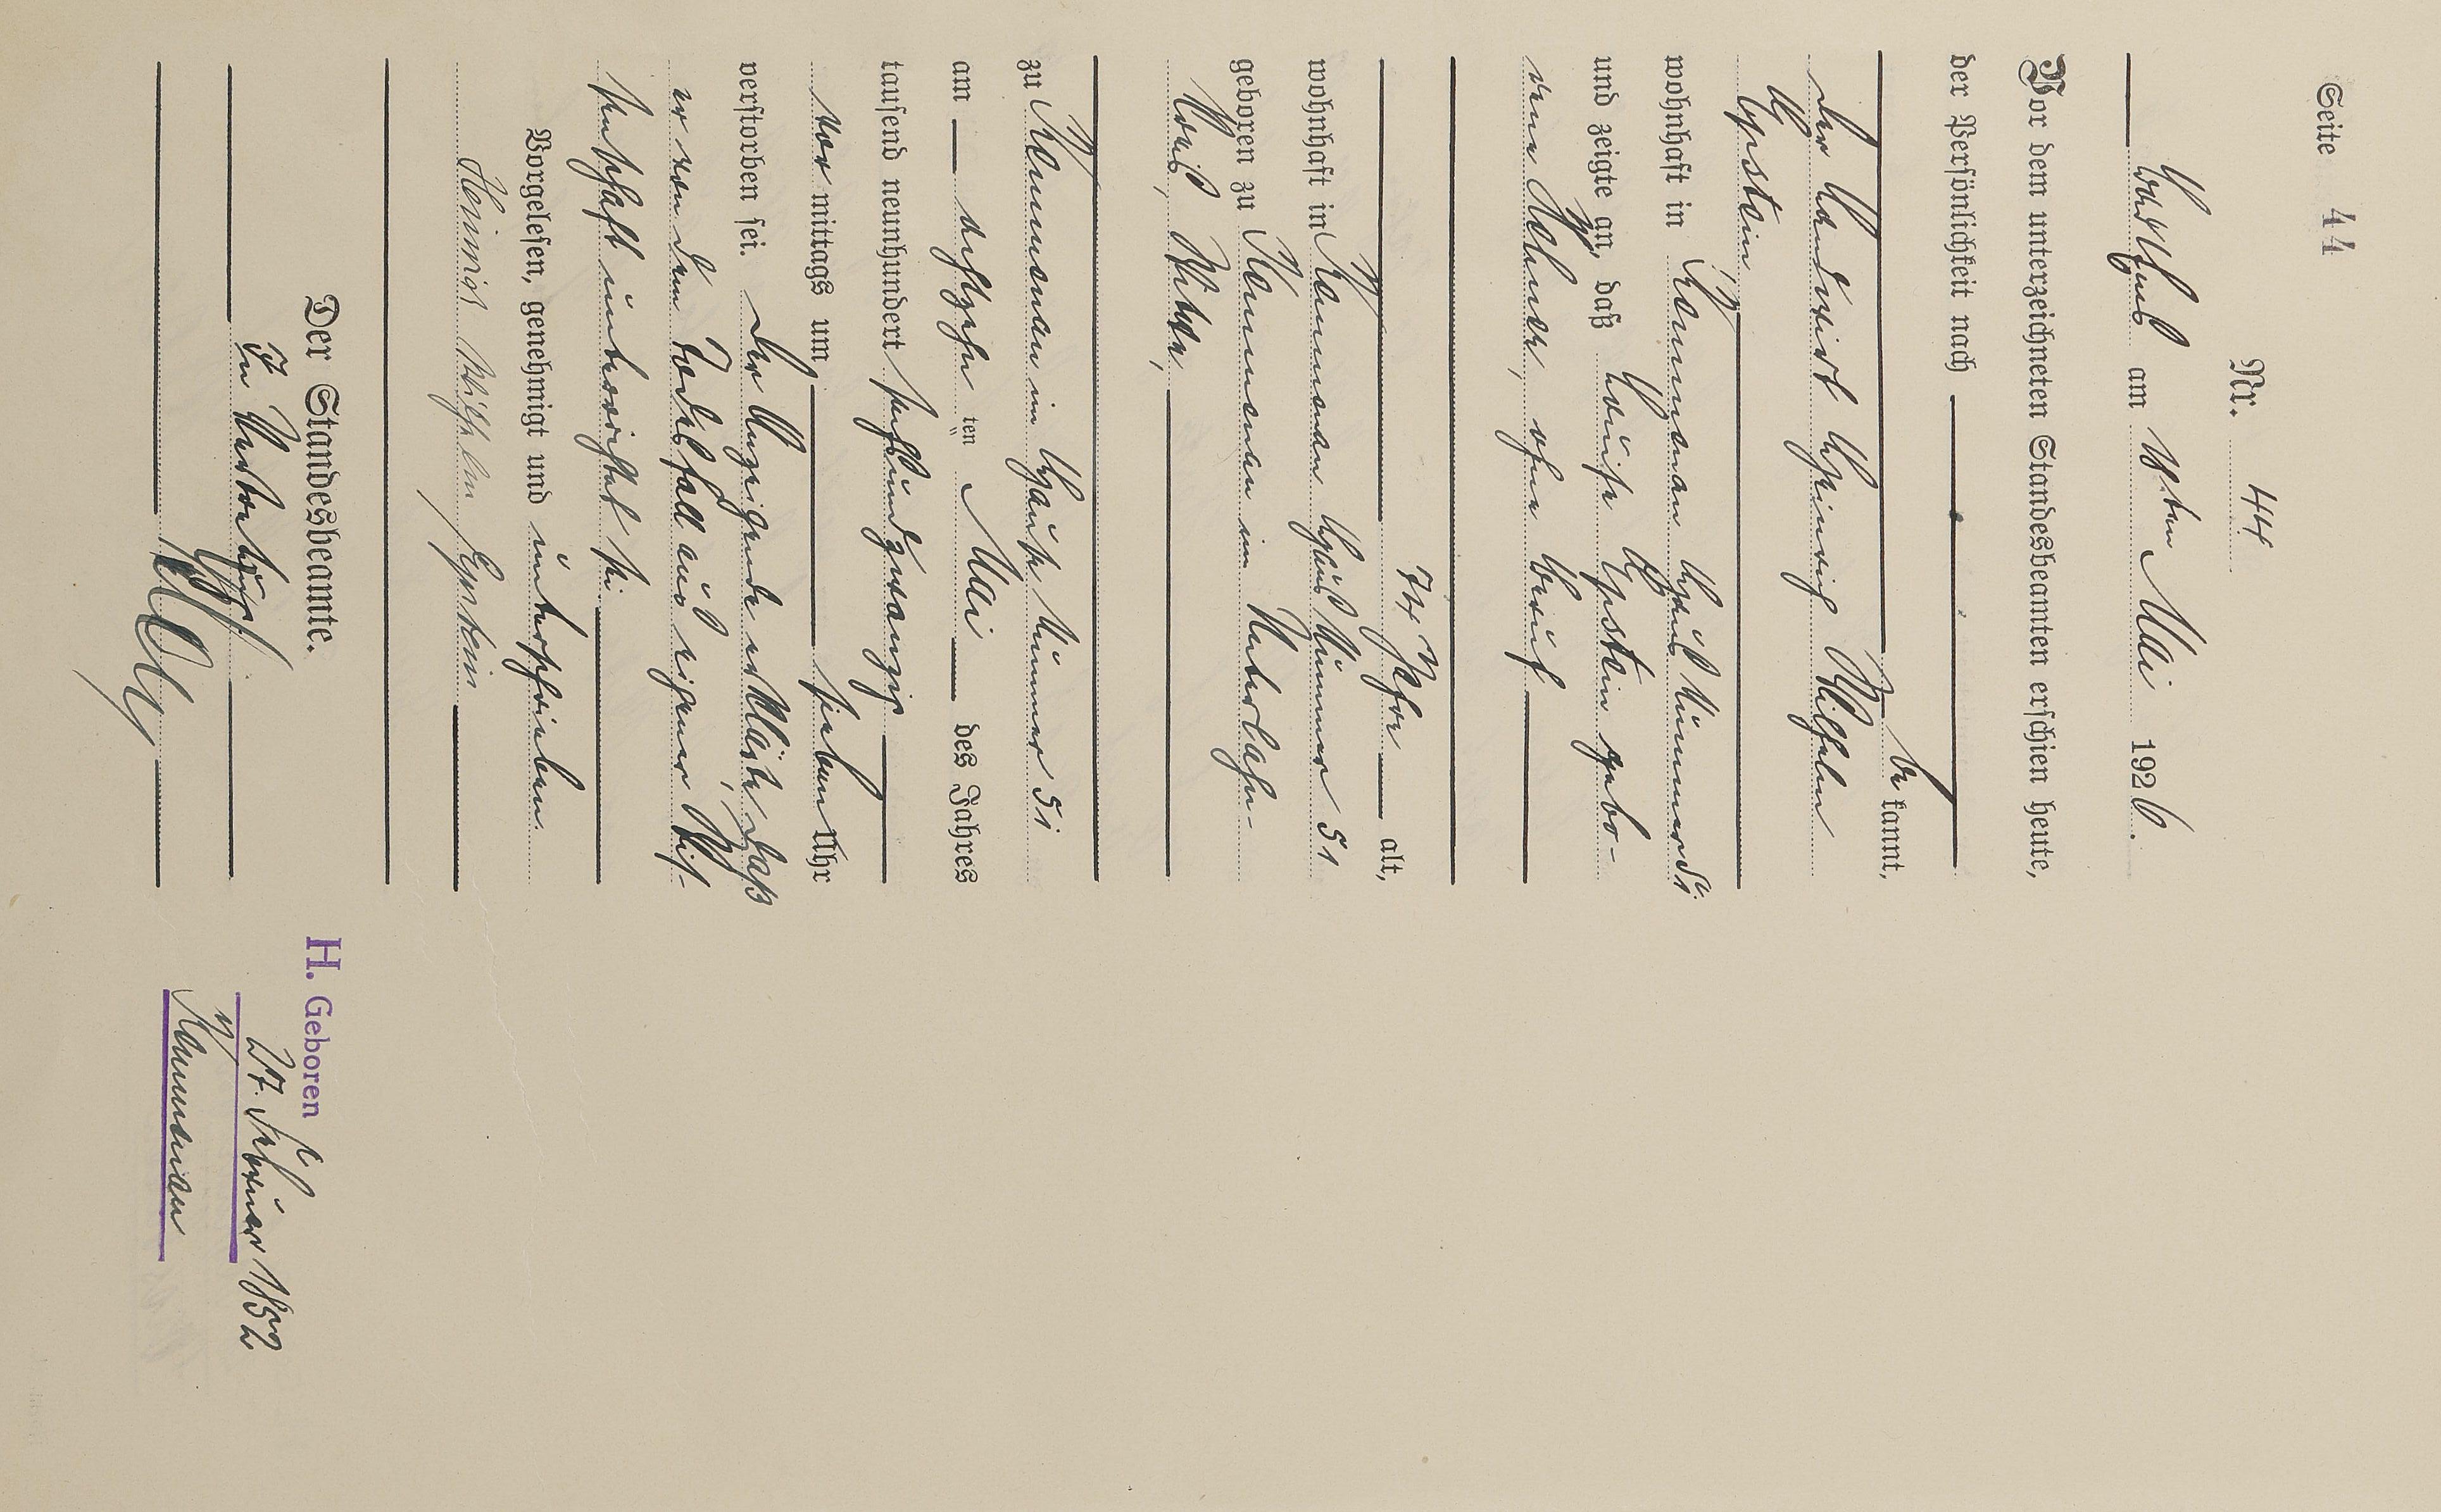 Seite 44
Nr. 44
am 18ten Mai 1926.
Vor dem unterzeichneten Standesbeamten erschien heute,
der Persönlichkeit nach
be kannt,
der Landwirt Heinrich Wilhelm
Epstein
wohnhaft in Hausnummer 51
und zeigte an, daß Luise Epstein gebo-
rene ohne Beruf
74 Jahre alt,
wohnhaft in Haus Nummer 51
geboren zu im
Kreis Wetzlar,
zu im Hause Nummer 51
am achtzehn ten Mai des Jahres
tausend neunhundert sechsundzwanzig
vor mittags um sieben Uhr
verstorben sei. Der Anzeigende erklärte, daß
er von dem Todesfall aus eigener Wis-
senschaft unterrichtet sei.
Vorgelesen, genehmigt und unterschrieben.
Heinrich Wilhelm Epstein
Der Standesbeamte.
In Vertretung:
H. Geboren
27. Februar 1852